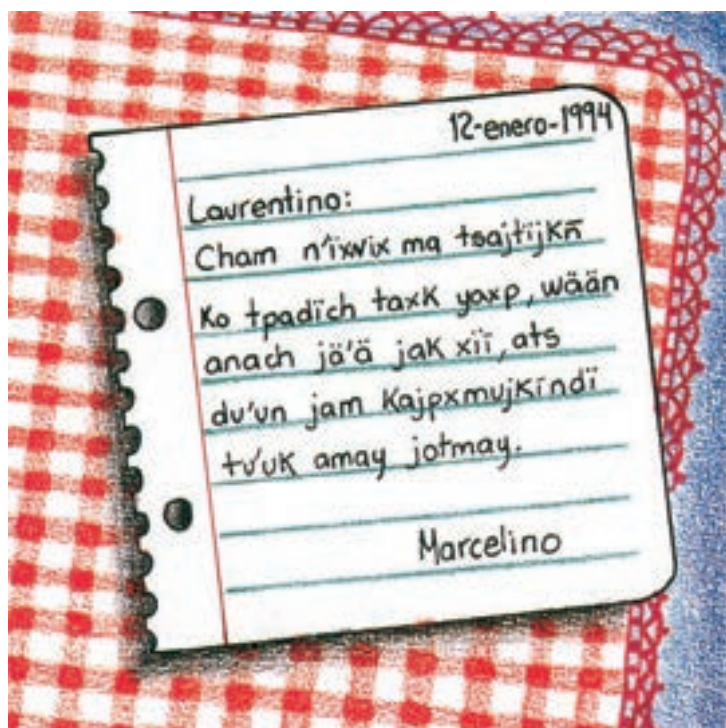 12-enero-1994
Laurentino:
Cham n'ïxwix ma tsajtïjkn̄
Ko tpadïch taxk yaxp, wään
anach jä'ä jak xïï, ats
du'un jam Kajpxmujkïndï
tu'uk amay jotmay.
Marcelino